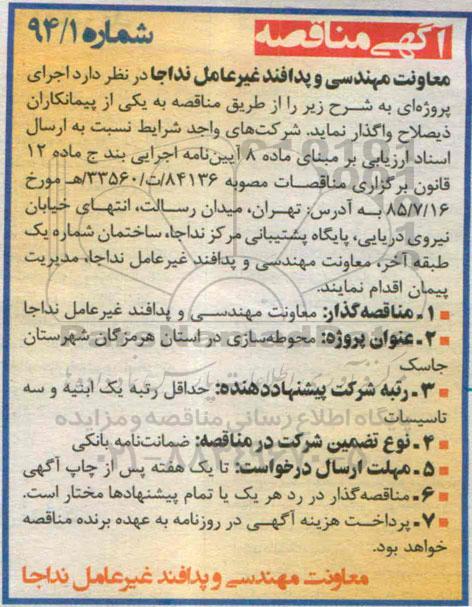 آگهی مناقصه
شماره ۹۴/۱
معاونت مهندسی و پدافند غیرعامل نداجا در نظر دارد اجرای
پروژه‌ای به شرح زیر را از طریق مناقصه به یکی از پیمانکاران
ذیصلاح واگذار نماید. شرکت‌های واجد شرایط نسبت به ارسال
اسناد ارزیابی بر مبنای ماده ۸ آیین‌نامه اجرایی بند ج ماده ۱۲
قانون برگزاری مناقصات مصوبه ۸۴۱۳۶/ت/۳۳۵۶۰هـ مورخ
۸۵/۷/۱۶ به آدرس: تهران، میدان رسالت، انتهای خیابان
نیروی دریایی، پایگاه پشتیبانی مرکز نداجا، ساختمان شماره یک
طبقه آخر، معاونت مهندسی و پدافند غیرعامل نداجا، مدیریت
پیمان اقدام نمایند.
۱ـ مناقصه‌گذار: معاونت مهندسی و پدافند غیرعامل نداجا
۲ـ عنوان پروژه: محوطه‌سازی در استان هرمزگان شهرستان
جاسک
۳ـ رتبه شرکت پیشنهاددهنده: حداقل رتبه یک ابنیه و سه
تاسیسات
۴ـ نوع تضمین شرکت در مناقصه: ضمانت‌نامه بانکی
۵ـ مهلت ارسال درخواست: تا یک هفته پس از چاپ آگهی
۶ـ مناقصه‌گذار در رد هر یک یا تمام پیشنهادها مختار است.
۷ـ پرداخت هزینه آگهی در روزنامه به عهده برنده مناقصه
خواهد بود.
معاونت مهندسی و پدافند غیرعامل نداجا